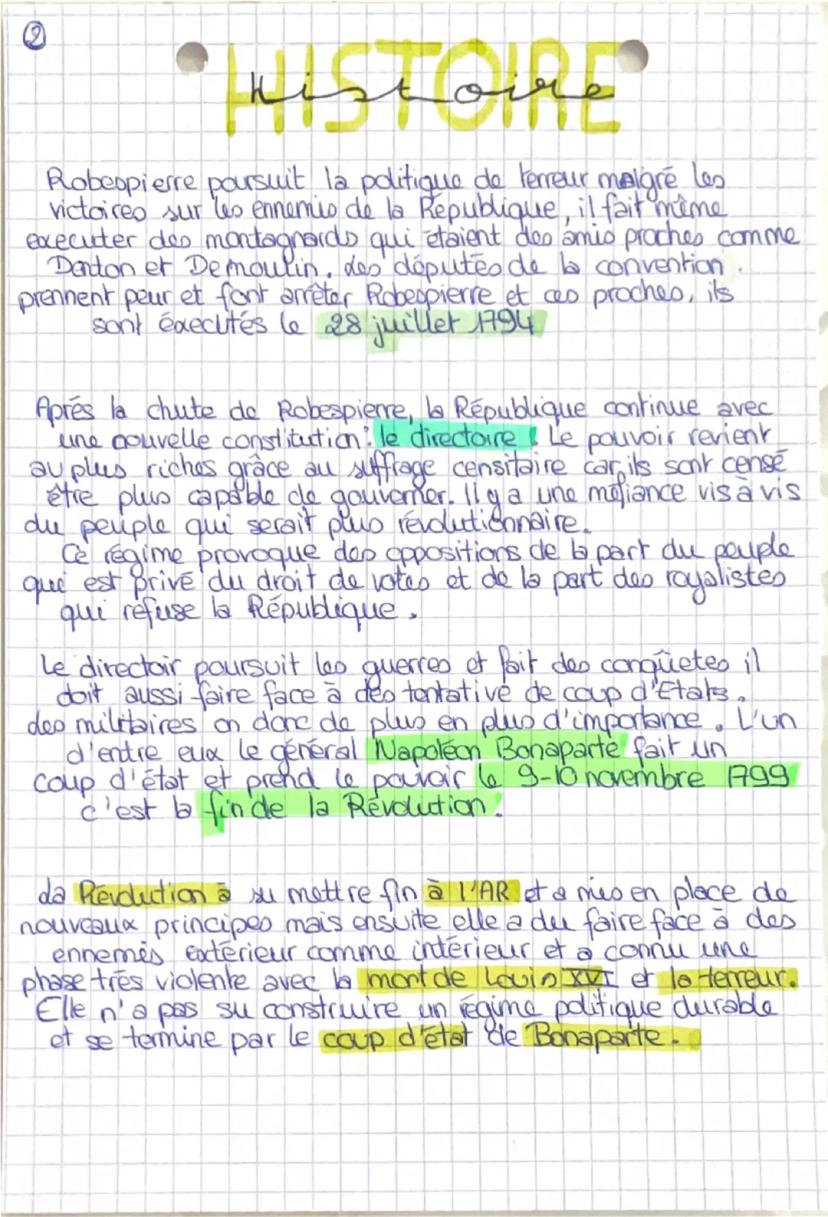 2
HISTOIRE
Histoire
Robespierre poursuit la politique de terreur malgré les
victoires sur les ennemis de la République, il fait même
executer des montagnards qui étaient des amis proches comme
Danton et Demoulin. des députés de la convention
prennent peur et font arrêter Robespierre et ces proches, ils
sont éxecutés le 28 juillet 1794
Après la chute de Robespierre, la République continue avec
une nouvelle constitution : le directoire. Le pouvoir revient
au plus riches grâce au suffrage censitaire car ils sont censé
être plus capable de gouverner. Il y a une méfiance vis à vis
du peuple qui serait plus révolutionnaire.
Ce régime provoque des oppositions de la part du peuple
qui est privé du droit de votes et de la part des royalistes
qui refuse la République.
Le directoir poursuit les guerres et fait des conqûetes il
doit aussi faire face à des tentative de coup d'Etats.
des militaires on donc de plus en plus d'importance. L'un
d'entre eux le général Napoléon Bonaparte fait un
coup d'état et prend le pouvoir le 9-10 novembre 1799
c'est la fin de la Révolution.
La Révolution à su mettre fin à l'AR et a mis en place de
nouveaux principes mais ensuite elle a du faire face à des
ennemis extérieur comme intérieur et a connu une
phase très violente avec la mort de Louis XVI et la terreur.
Elle n'a pas su construire un régime politique durable
et se termine par le coup d'état de Bonaparte.